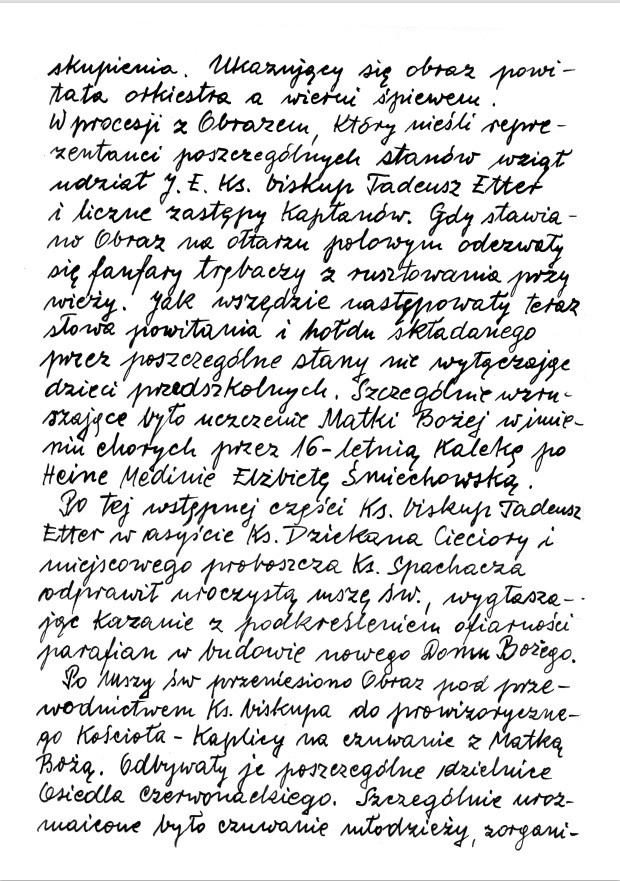 skupienia. Ukazujący się obraz powi-
tała orkiestra a wierni śpiewem.
W procesji z Obrazem, który nieśli repre-
zentanci poszczególnych stanów wziął
udział J. E. Ks. biskup Tadeusz Etter
i liczne zastępy Kapłanów. Gdy stawia-
no Obraz na ołtarzu polowym odezwały
się fanfary trębaczy z rusztowania przy
wieży. Jak wszędzie następowały teraz
słowa powitania i hołdu składanego
przez poszczególne stany nie wyłączając
dzieci przedszkolnych. Szczególnie wzru-
szające było uczczenie Matki Bożej w imie-
niu chorych przez 16-letnią Kalekę po
Heine Medinie Elżbietę Śmiechowską.
Po tej wstępnej części Ks. biskup Tadeusz
Etter w asyście Ks. Dziekana Cieciory i
miejscowego proboszcza Ks. Spachacza
odprawił uroczystą mszę św., wygłasza-
jąc Kazanie z podkreśleniem ofiarności
parafian w budowie nowego Domu Bożego.
Po Mszy św przeniesiono Obraz pod prze-
wodnictwem Ks. biskupa do prowizoryczne-
go Kościoła - Kaplicy na czuwanie z Matką
Bożą. Odbywały je poszczególne dzielnice
Osiedla Czerwonackiego. Szczególnie uroz-
maicone było czuwanie młodzieży, zorgani-